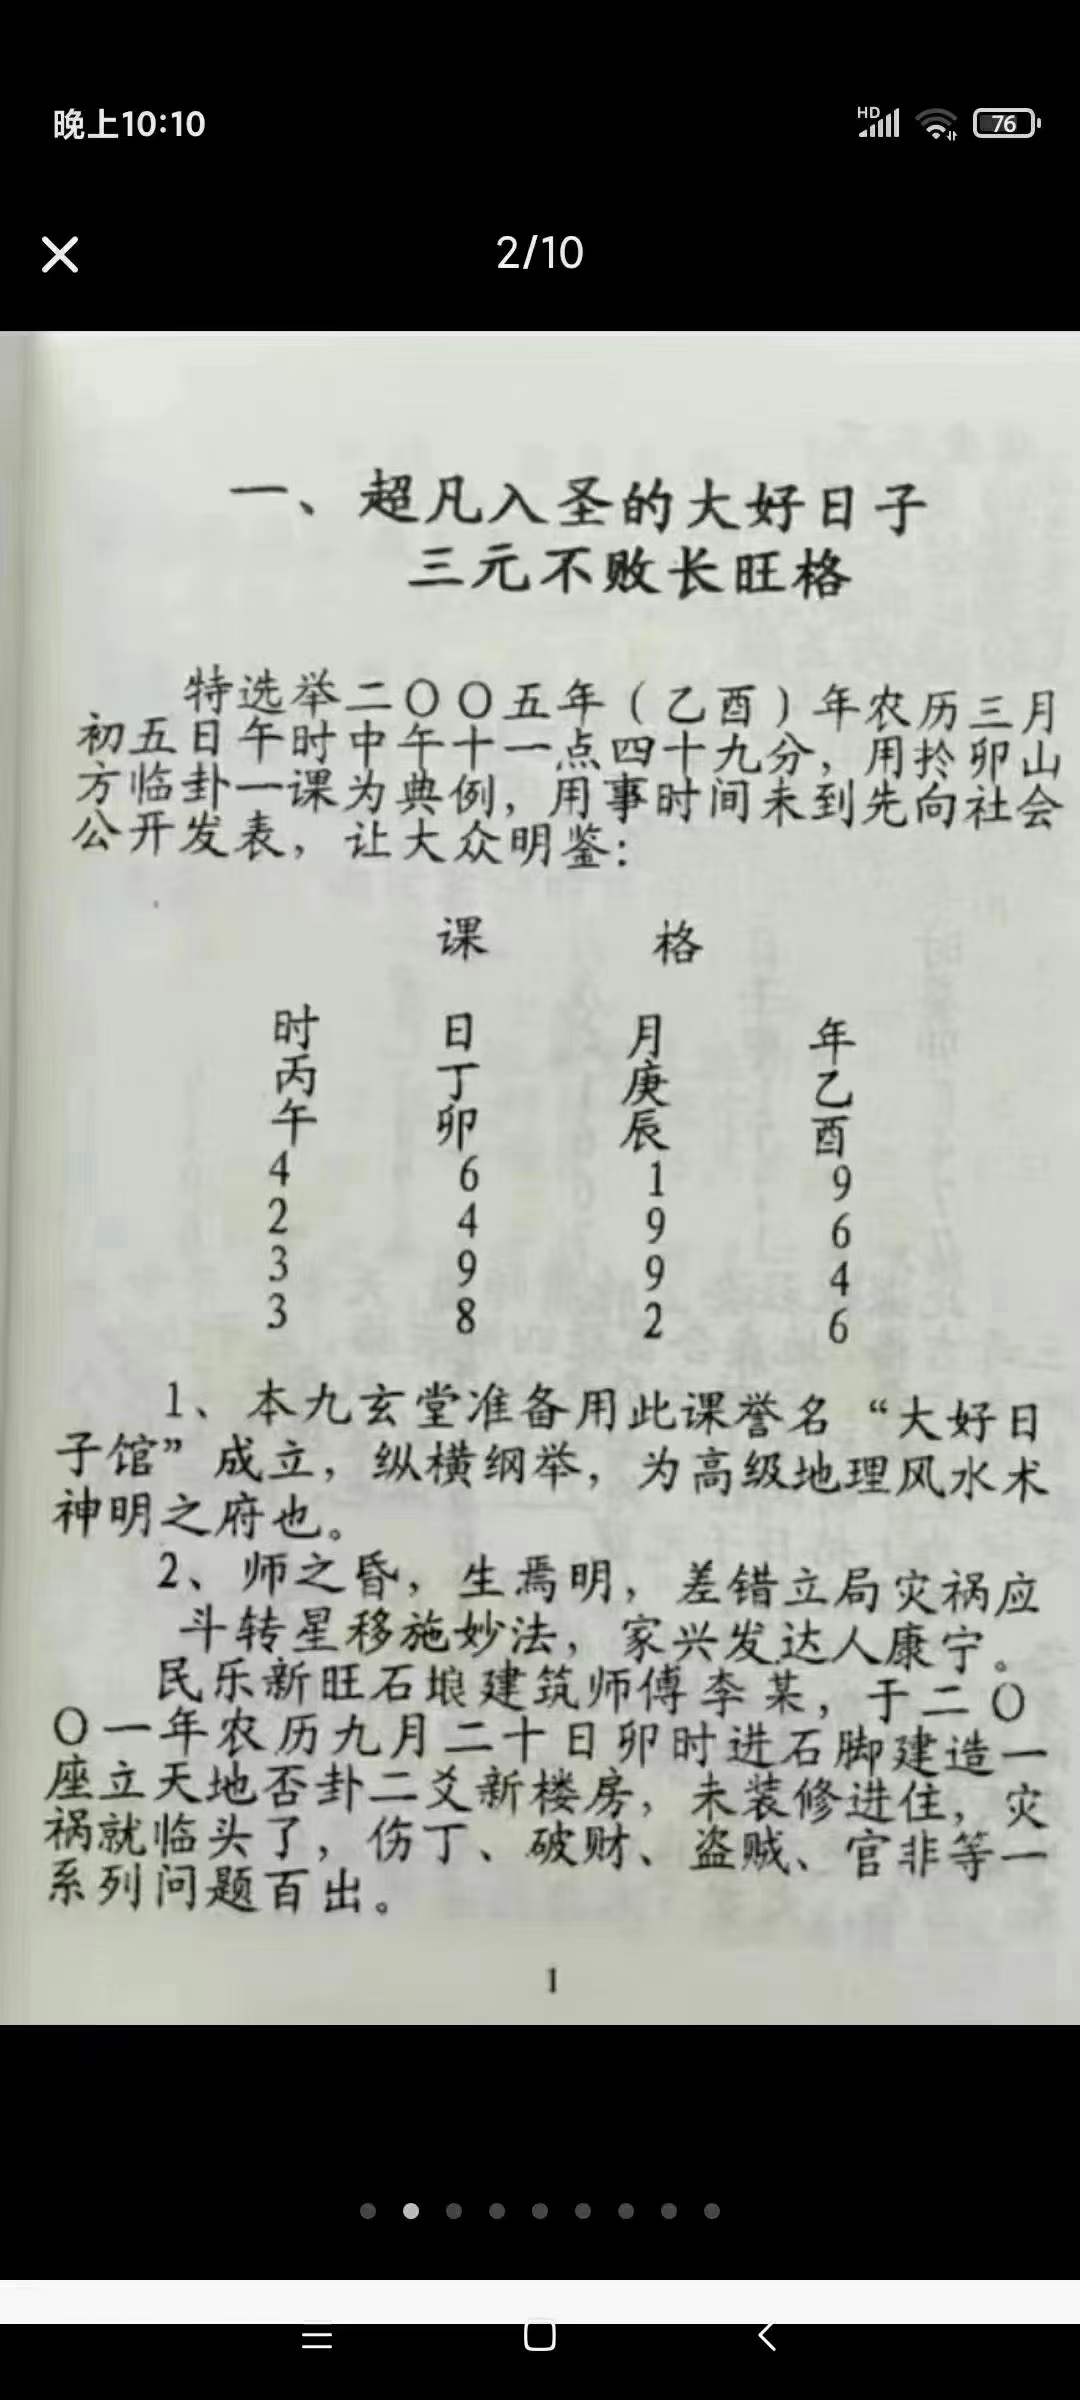 晚上10:10
HD
76
2/10
一、超凡入圣的大好日子
三元不败长旺格
特选举二〇〇五年（乙酉）年农历三月
初五日午时中午十一点四十九分，用扵卯山
方临卦一课为典例，用事时间未到先向社会
公开发表，让大众明鉴：
课 格
时 日 月 年
丙 丁 庚 乙
午 卯 辰 酉
4 6 1 9
2 4 9 6
3 9 9 4
3 8 2 6
1、本九玄堂准备用此课誉名“大好日
子馆”成立，纵横纲举，为高级地理风水术
神明之府也。
2、师之昏，生焉明，差错立局灾祸应
斗转星移施妙法，家兴发达人康宁。
民乐新旺石埌建筑师傅李某，于二〇
〇一年农历九月二十日卯时进石脚建造一
座立天地否卦二爻新楼房，未装修进住，灾
祸就临头了，伤丁、破财、盗贼、官非等一
系列问题百出。
1